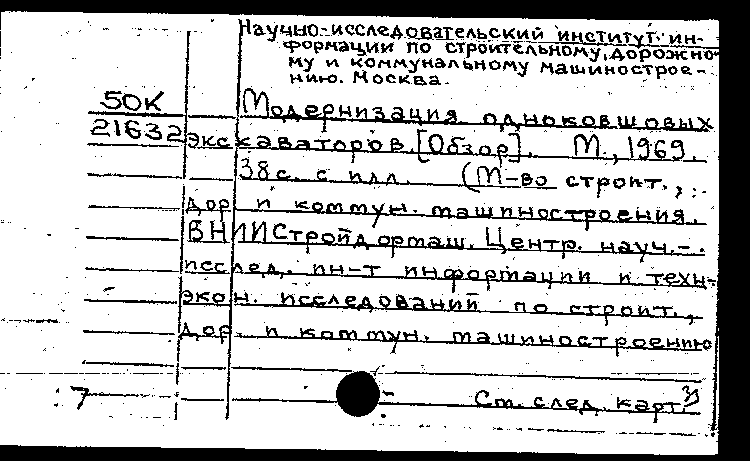 Научно-исследовательский институт ин-
формации по строительному, дорожно-
му и коммунальному машинострое-
нию. Москва.
50К Модернизация одноковшовых
21632 экскаваторов. [Обзор]. М., 1969.
38 с. с илл. (М-во строит.,
дор. и коммун. машиностроения.
ВНИИСтройдормаш. Центр. науч.-
исслед. ин-т информации и техн-
экон. исследований по строит.,
дор. и коммун. машиностроению
7 См. след. карт.